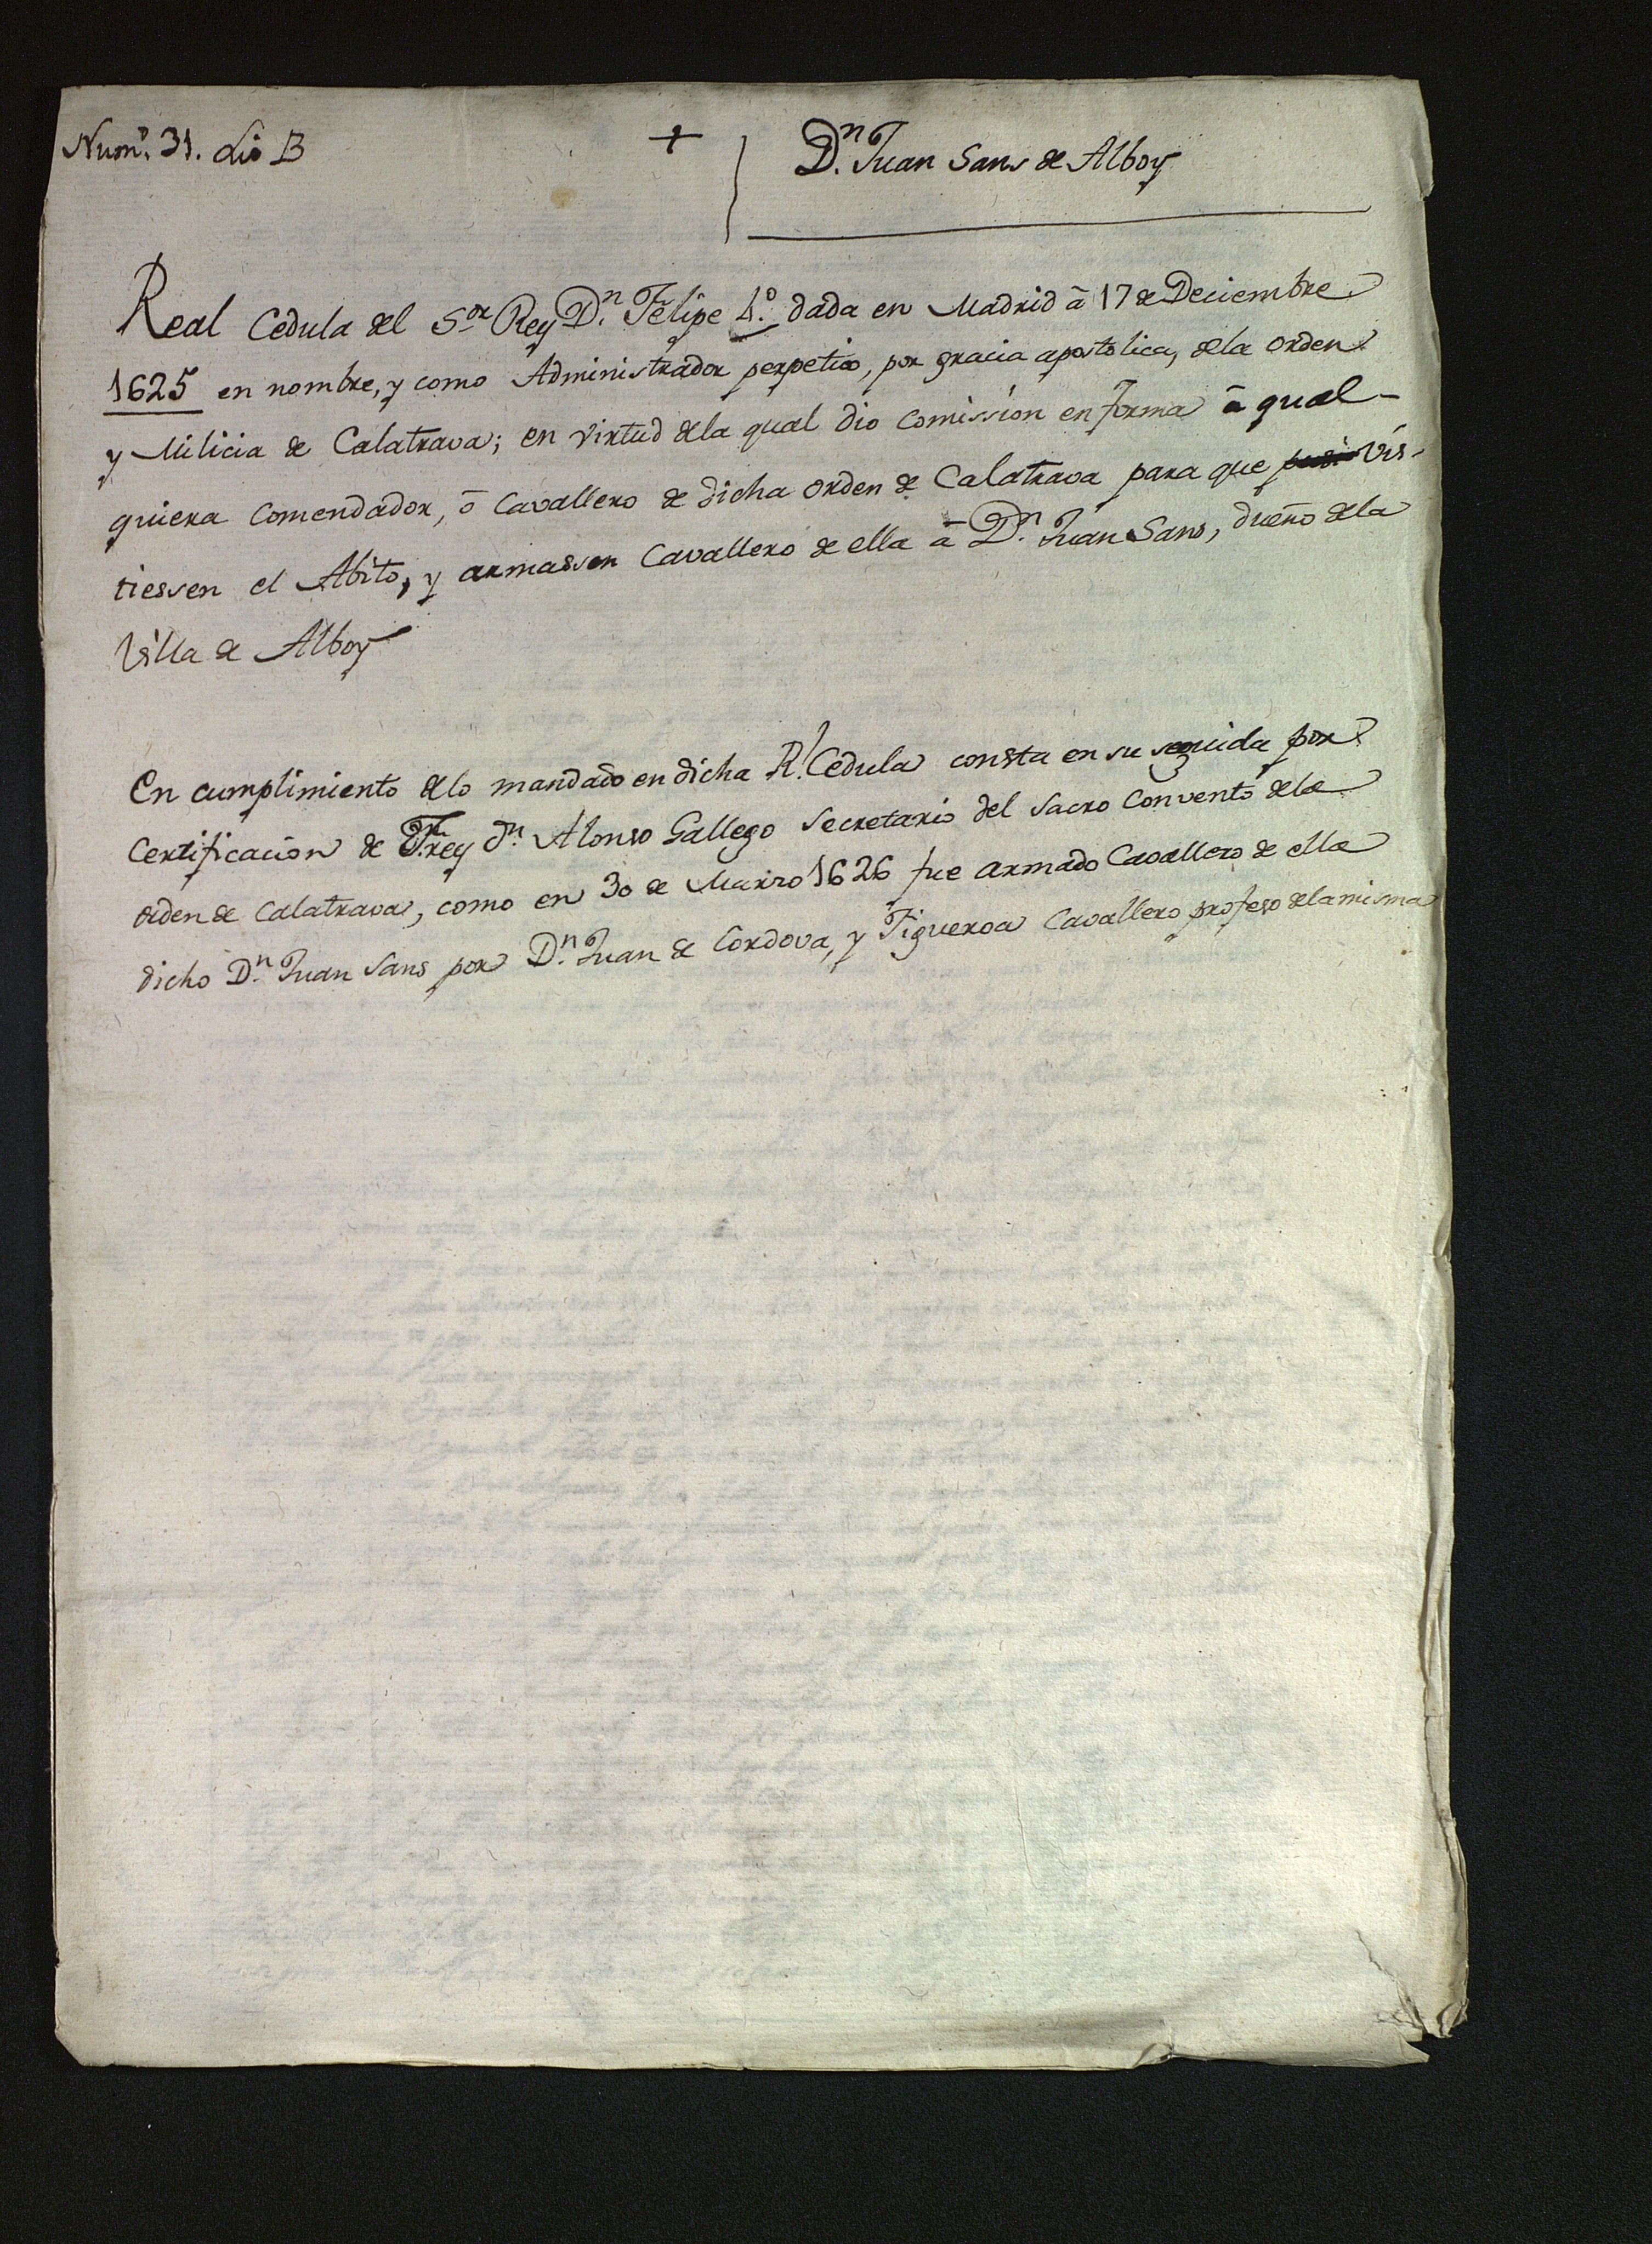 Numº. 31. Lio B
+
Dn. Juan Sans de Alboy
Real Cedula del Sor Rey Dn. Felipe 4º. dada en Madrid â 17 de Deciembre
1625 en nombre, y como Administrador perpetuo, por gracia apostolica, dela orden
y Milicia de Calatrava; en virtud dela qual dio comission en forma â qual-
quiera Comendador, ô Cavallero de dicha orden de Calatrava para que vis-
tiessen el Abito, y armassen Cavallero de ella â Dn. Juan Sans, dueño dela
Villa de Alboy
En cumplimiento delo mandado en dicha Rl. Cedula consta en su seguida por
Certificacion de Frey Dn. Alonso Gallego Secretario del Sacro Convento dela
orden de Calatrava, como en 30 de Marzo 1626 fue armado Cavallero de ella
dicho Dn. Juan Sans por Dn. Juan de Cordova, y Figueroa Cavallero profeso dela misma